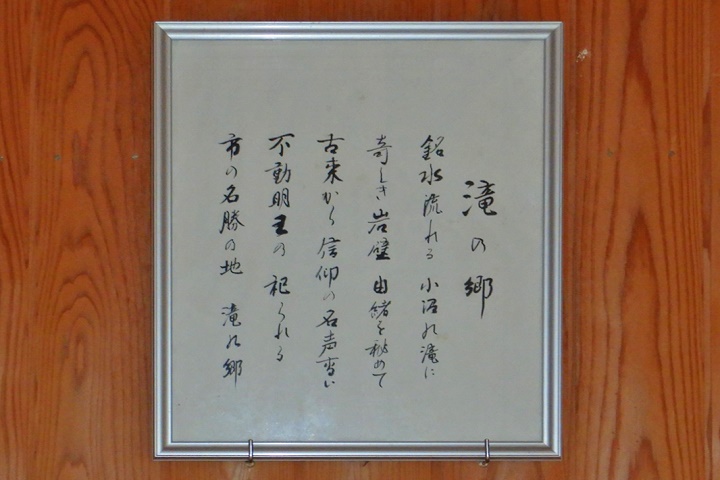 滝の郷
銘水流れる 小沼の滝に
奇しき岩壁 由緒を秘めて
古来から信仰の名声高い
不動明王の祀られる
市の名勝の地 滝の郷